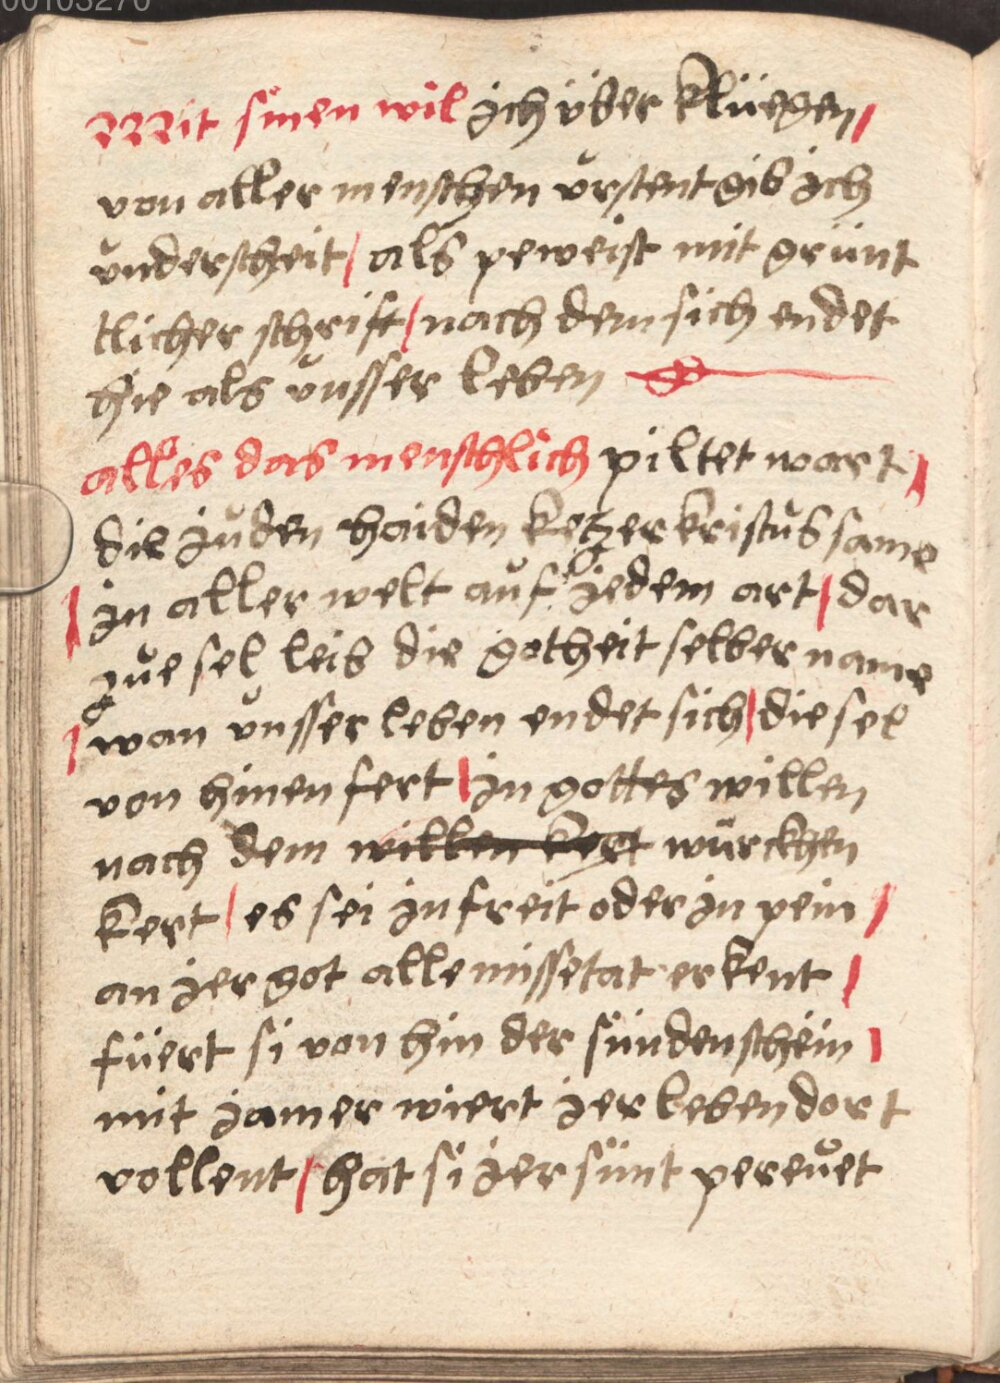 00103270
Mit sinen wil ich über klüegen /
von aller menschen ůrstent gib ich
ůnderscheit / als peweist mit grünt
tlicher schrift / nach dem sich endet
hie als ůnsser leben
alles das menschlich piltet wart /
die jůden haiden ketzer kristůs same
/ jn aller welt aůf jedem art / dar
zůe sel leib die gotheit selber name
/ wan ůnsser leben endet sich / die sel
von hinen fert / jn gottes willen
nach dem willen kert würckhen
kert / es sei jn freit oder jn pein /
an jer got alle missetat erkent /
füert si von hin der sünden schein /
mit jamer wiert jer leben dort
vollent / hat si jer sünt pereůet